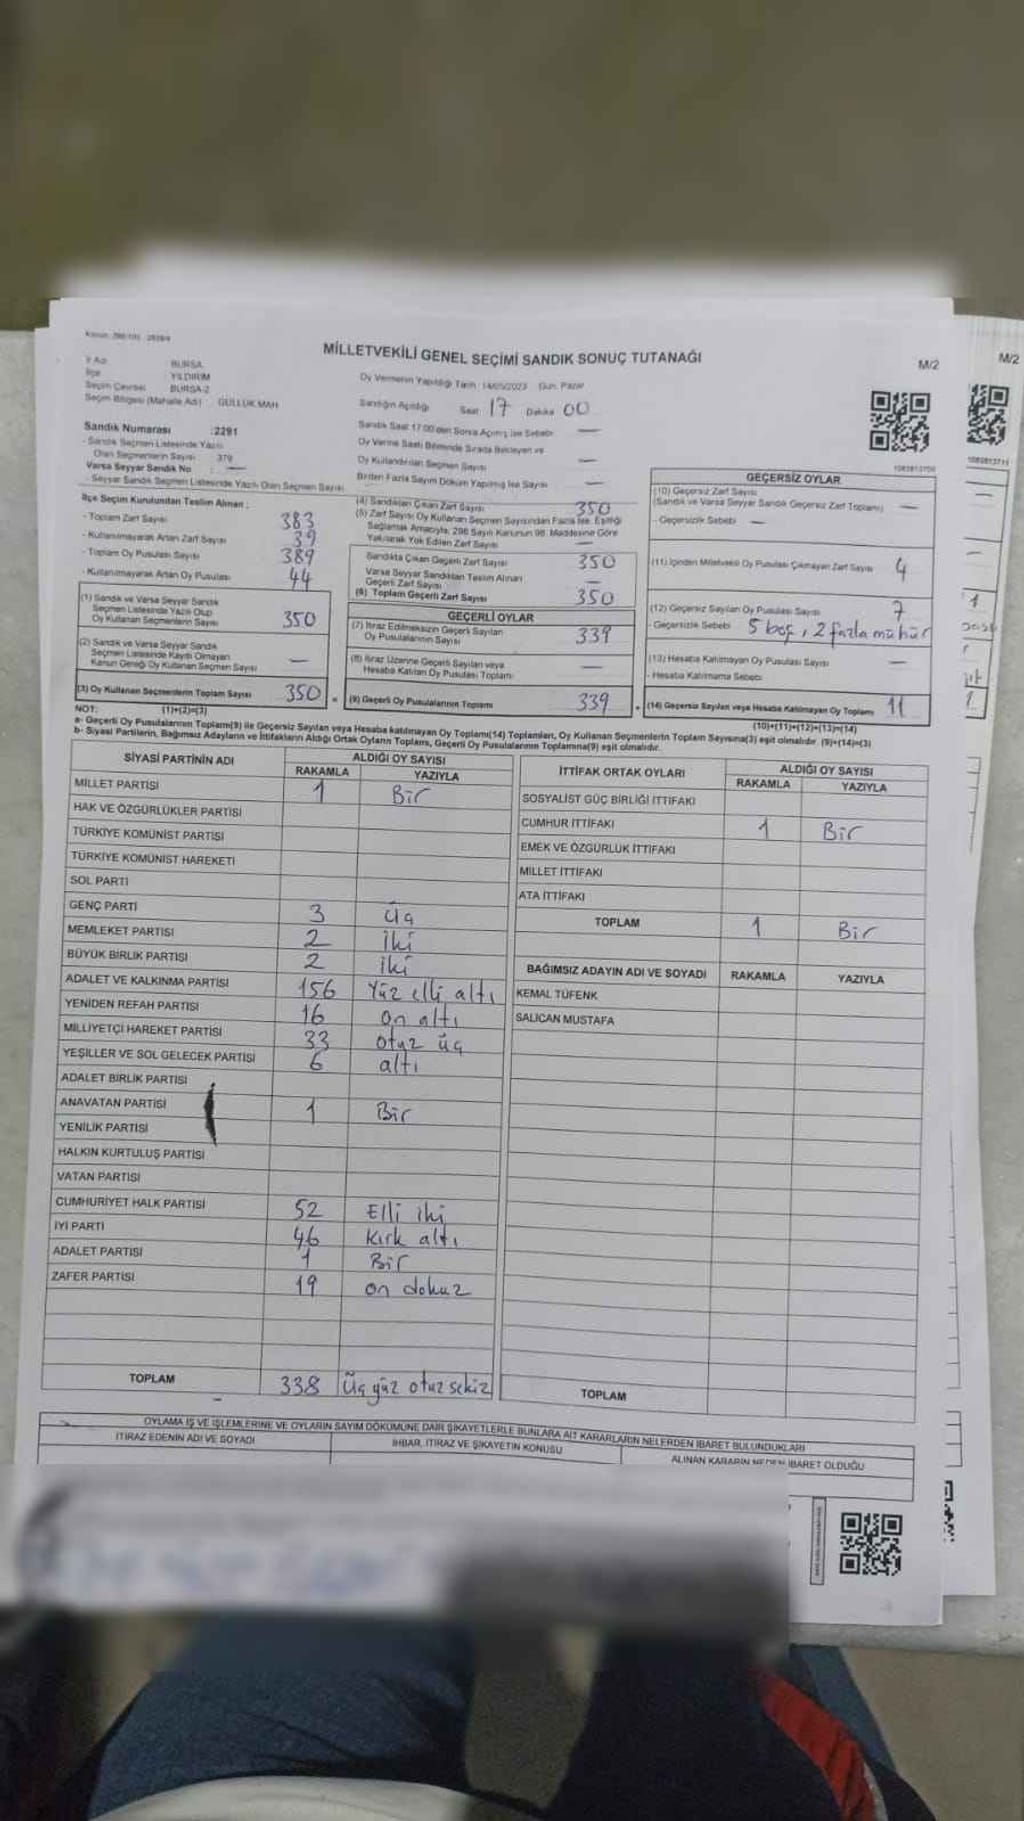 Kanun: 298/105 - 2839/4
MİLLETVEKİLİ GENEL SEÇİMİ SANDIK SONUÇ TUTANAĞI
M/2
M/2
İl Adı : BURSA
İlçe : YILDIRIM
Seçim Çevresi : BURSA-2
Seçim Bölgesi (Mahalle Adı) : GÜLLÜK MAH
Sandık Numarası :2291
- Sandık Seçmen Listesinde Yazılı
Olan Seçmenlerin Sayısı : 379
Varsa Seyyar Sandık No : —
- Seyyar Sandık Seçmen Listesinde Yazılı Olan Seçmen Sayısı
Oy Vermenin Yapıldığı Tarih : 14/05/2023 Gün: Pazar
Sandığın Açıldığı Saat 17 Dakika 00
Sandık Saat 17:00'den Sonra Açılmış İse Sebebi —
Oy Verme Saati Bitiminde Sırada Bekleyen ve
Oy Kullandırılan Seçmen Sayısı —
Birden Fazla Sayım Döküm Yapılmış İse Sayısı —
İlçe Seçim Kurulundan Teslim Alınan :
- Toplam Zarf Sayısı 383
- Kullanılmayarak Artan Zarf Sayısı 39
- Toplam Oy Pusulası Sayısı 389
- Kullanılmayarak Artan Oy Pusulası 44
(1) Sandık ve Varsa Seyyar Sandık
Seçmen Listesinde Yazılı Olup
Oy Kullanan Seçmenlerin Sayısı 350
(2) Sandık ve Varsa Seyyar Sandık
Seçmen Listesinde Kayıtlı Olmayan
Kanun Gereği Oy Kullanan Seçmen Sayısı —
(3) Oy Kullanan Seçmenlerin Toplam Sayısı 350
(4) Sandıktan Çıkan Zarf Sayısı 350
(5) Zarf Sayısı Oy Kullanan Seçmen Sayısından Fazla İse, Eşitliği
Sağlamak Amacıyla, 298 Sayılı Kanunun 98. Maddesine Göre
Yakılarak Yok Edilen Zarf Sayısı —
Sandıkta Çıkan Geçerli Zarf Sayısı 350
Varsa Seyyar Sandıktan Teslim Alınan
Geçerli Zarf Sayısı —
(6) Toplam Geçerli Zarf Sayısı 350
GEÇERLİ OYLAR
(7) İtiraz Edilmeksizin Geçerli Sayılan
Oy Pusulalarının Sayısı 339
(8) İtiraz Üzerine Geçerli Sayılan veya
Hesaba Katılan Oy Pusulası Toplamı —
= (9) Geçerli Oy Pusulalarının Toplamı 339
GEÇERSİZ OYLAR
(10) Geçersiz Zarf Sayısı
(Sandık ve Varsa Seyyar Sandık Geçersiz Zarf Toplamı) —
- Geçersizlik Sebebi —
(11) İçinden Milletvekili Oy Pusulası Çıkmayan Zarf Sayısı 4
(12) Geçersiz Sayılan Oy Pusulası Sayısı 7
- Geçersizlik Sebebi 5 boş, 2 fazla mühür
(13) Hesaba Katılmayan Oy Pusulası Sayısı —
- Hesaba Katılmama Sebebi
+ (14) Geçersiz Sayılan veya Hesaba Katılmayan Oy Toplamı 11
NOT: (1)+(2)=(3)
(10)+(11)+(12)+(13)=(14)
a- Geçerli Oy Pusulalarının Toplamı(9) ile Geçersiz Sayılan veya Hesaba katılmayan Oy Toplamı(14) Toplamları, Oy Kullanan Seçmenlerin Toplam Sayısına(3) eşit olmalıdır. (9)+(14)=(3)
b- Siyasi Partilerin, Bağımsız Adayların ve İttifakların Aldığı Ortak Oyların Toplamı, Geçerli Oy Pusulalarının Toplamına(9) eşit olmalıdır.
SİYASİ PARTİNİN ADI ALDIĞI OY SAYISI
RAKAMLA YAZIYLA
MİLLET PARTİSİ 1 Bir
HAK VE ÖZGÜRLÜKLER PARTİSİ
TÜRKİYE KOMÜNİST PARTİSİ
TÜRKİYE KOMÜNİST HAREKETİ
SOL PARTİ
GENÇ PARTİ 3 Üç
MEMLEKET PARTİSİ 2 iki
BÜYÜK BİRLİK PARTİSİ 2 iki
ADALET VE KALKINMA PARTİSİ 156 Yüz elli altı
YENİDEN REFAH PARTİSİ 16 on altı
MİLLİYETÇİ HAREKET PARTİSİ 33 otuz üç
YEŞİLLER VE SOL GELECEK PARTİSİ 6 altı
ADALET BİRLİK PARTİSİ
ANAVATAN PARTİSİ 1 Bir
YENİLİK PARTİSİ
HALKIN KURTULUŞ PARTİSİ
VATAN PARTİSİ
CUMHURİYET HALK PARTİSİ 52 Elli iki
İYİ PARTİ 46 kırk altı
ADALET PARTİSİ 1 Bir
ZAFER PARTİSİ 19 on dokuz
TOPLAM 338 Üç yüz otuz sekiz
İTTİFAK ORTAK OYLARI ALDIĞI OY SAYISI
RAKAMLA YAZIYLA
SOSYALİST GÜÇ BİRLİĞİ İTTİFAKI
CUMHUR İTTİFAKI 1 Bir
EMEK VE ÖZGÜRLÜK İTTİFAKI
MİLLET İTTİFAKI
ATA İTTİFAKI
TOPLAM 1 Bir
BAĞIMSIZ ADAYIN ADI VE SOYADI RAKAMLA YAZIYLA
KEMAL TÜFENK
SALİCAN MUSTAFA
TOPLAM
OYLAMA İŞ VE İŞLEMLERİNE VE OYLARIN SAYIM DÖKÜMÜNE DAİR ŞİKAYETLERLE BUNLARA AİT KARARLARIN NELERDEN İBARET BULUNDUKLARI
İTİRAZ EDENİN ADI VE SOYADI İHBAR, İTİRAZ VE ŞİKAYETİN KONUSU ALINAN KARARIN NEDEN İBARET OLDUĞU